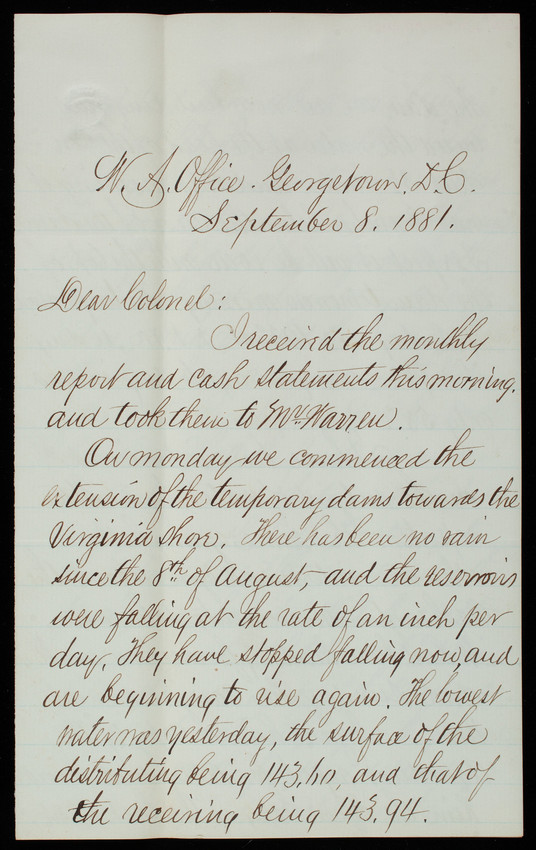 W. A. Office. Georgetown. D.C.
September 8. 1881.
Dear Colonel:
I received the monthly
report and cash statements this morning.
and took them to Mr. Warren.
On monday we commenced the
extension of the temporary dams towards the
Virginia shore. There has been no rain
since the 8th of August, and the reservoirs
were falling at the rate of an inch per
day. They have stopped falling now, and
are beginning to rise again. The lowest
water was yesterday, the surface of the
distributing being 143.60, and that of
the receiving being 143.94.